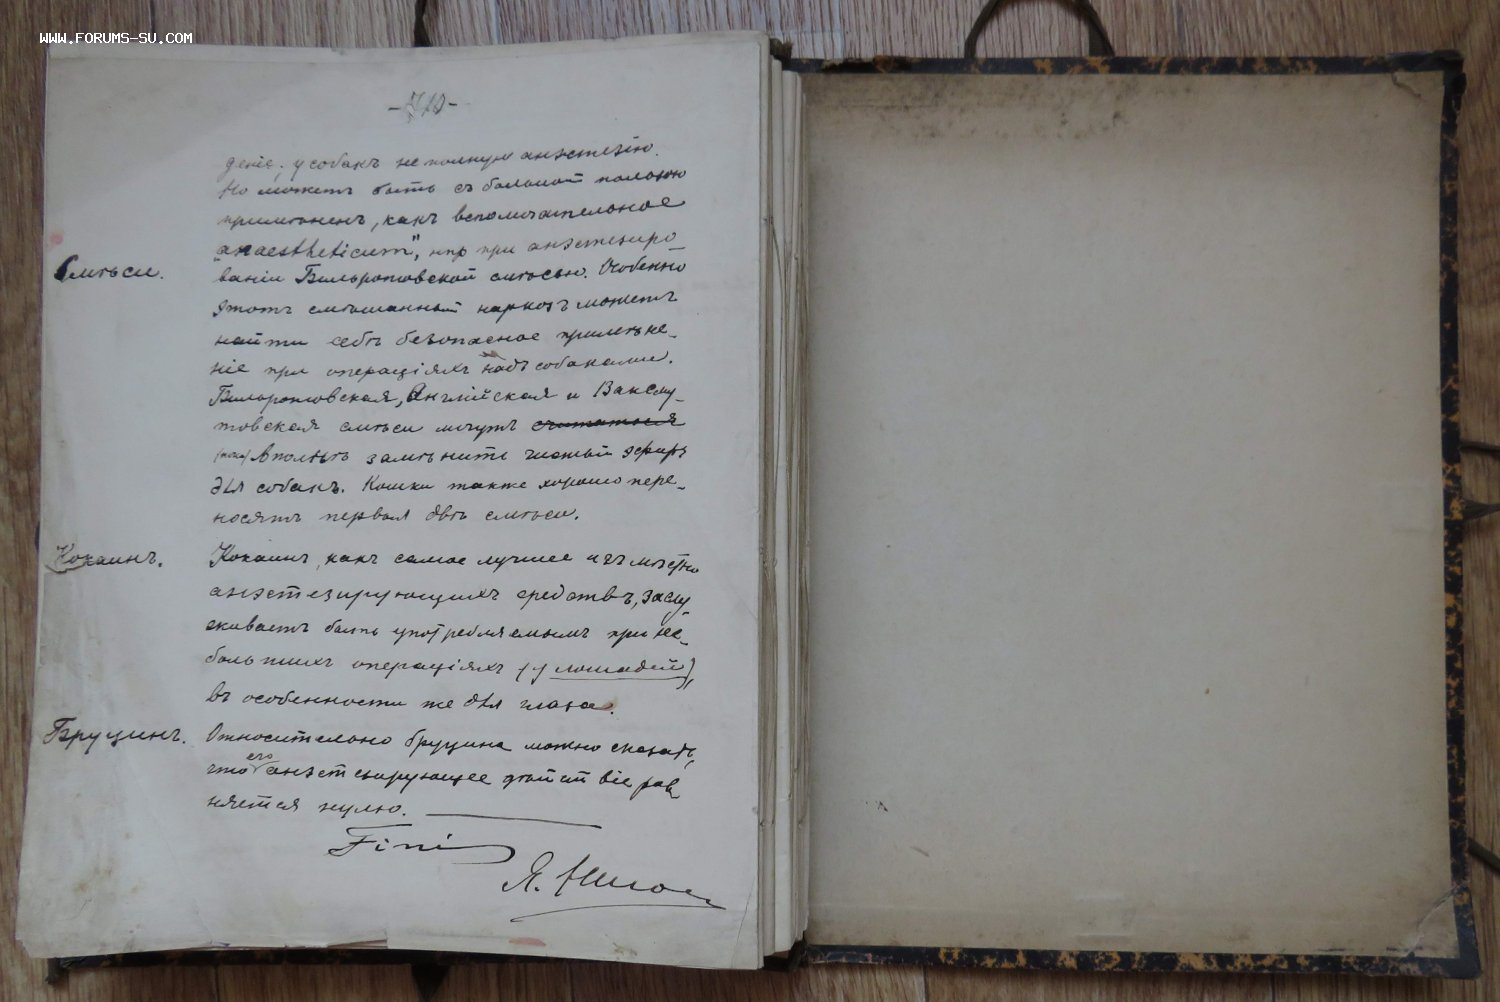 WWW.FORUMS-SU.COM
деніе; у собакъ не полную анэстезію.
Но можетъ быть съ большой пользою
примѣненъ, какъ вспомогательное
„anaestheticum", нпр при анэстезиро-
Смѣси.
ваніи Бильротовской смѣсью. Особенно
этотъ смѣшанный наркозъ можетъ
найти себѣ безопасное примѣне-
ніе при операціяхъ надъ собаками.
Бильротовская, Англійская и Ваксму-
товская смѣси могутъ считаться
вполнѣ замѣнить чистый эфиръ
для собакъ. Кошки также хорошо пере-
носятъ первыя двѣ смѣси.
Кокаинъ.
Кокаинъ, какъ самое лучшее изъ мѣстно
анэстезирующихъ средствъ, заслу-
живаетъ быть употребляемымъ при не-
большихъ операціяхъ (у лошадей),
въ особенности же для глаза.
Бруцинъ.
Относительно бруцина можно сказать,
что его анэстезирующее дѣйствіе рав
няется нулю.
Finis
Я.